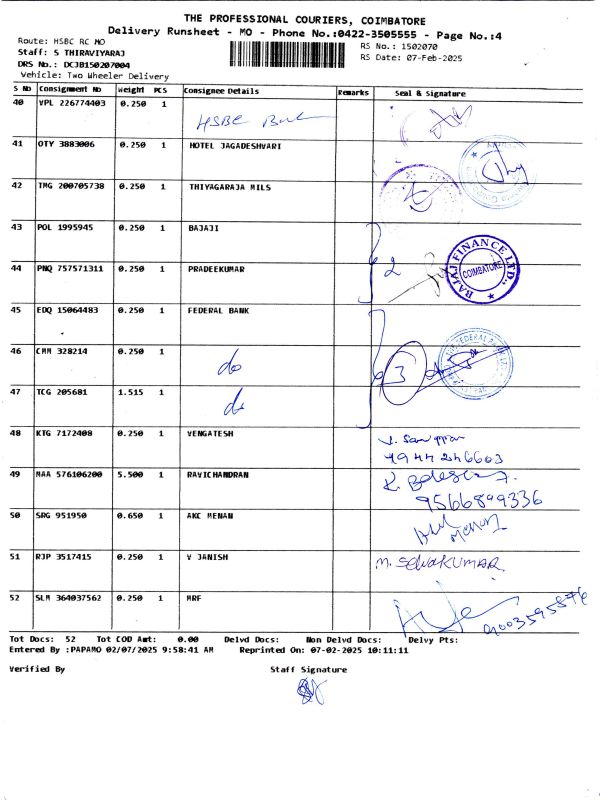 THE PROFESSIONAL COURIERS, COIMBATORE
Delivery Runsheet - MO - Phone No.:0422-3505555 - Page No.:4
Route: HSBC RC MO
RS No.: 1502070
Staff: S THIRAVIYARAJ
RS Date: 07-Feb-2025
DRS No.: DCJB150207004
Vehicle: Two Wheeler Delivery
S No Consignment No Weight PCS Consignee Details Remarks Seal & Signature
40 VPL 226774403 0.250 1 HSBC Bank
41 OTY 3883006 0.250 1 HOTEL JAGADESHVARI
42 TMG 200705738 0.250 1 THIYAGARAJA MILS
43 POL 1995945 0.250 1 BAJAJI
44 PNQ 757571311 0.250 1 PRADEEKUMAR 2 BAJAJ FINANCE LTD., COIMBATORE
45 EDQ 15064483 0.250 1 FEDERAL BANK
46 CMM 328214 0.250 1 do 3
47 TCG 205681 1.515 1 do
48 KTG 7172408 0.250 1 VENGATESH
49 MAA 576106200 5.500 1 RAVICHANDRAN 9566899336
50 SRG 951950 0.650 1 AKC MENAN Menon
51 RJP 3517415 0.250 1 V JANISH M. SelvaKUMAR
52 SLM 364037562 0.250 1 MRF 9003595876
Tot Docs: 52 Tot COD Amt: 0.00 Delvd Docs: Non Delvd Docs: Delvy Pts:
Entered By :PAPAMO 02/07/2025 9:58:41 AM Reprinted On: 07-02-2025 10:11:11
Verified By Staff Signature